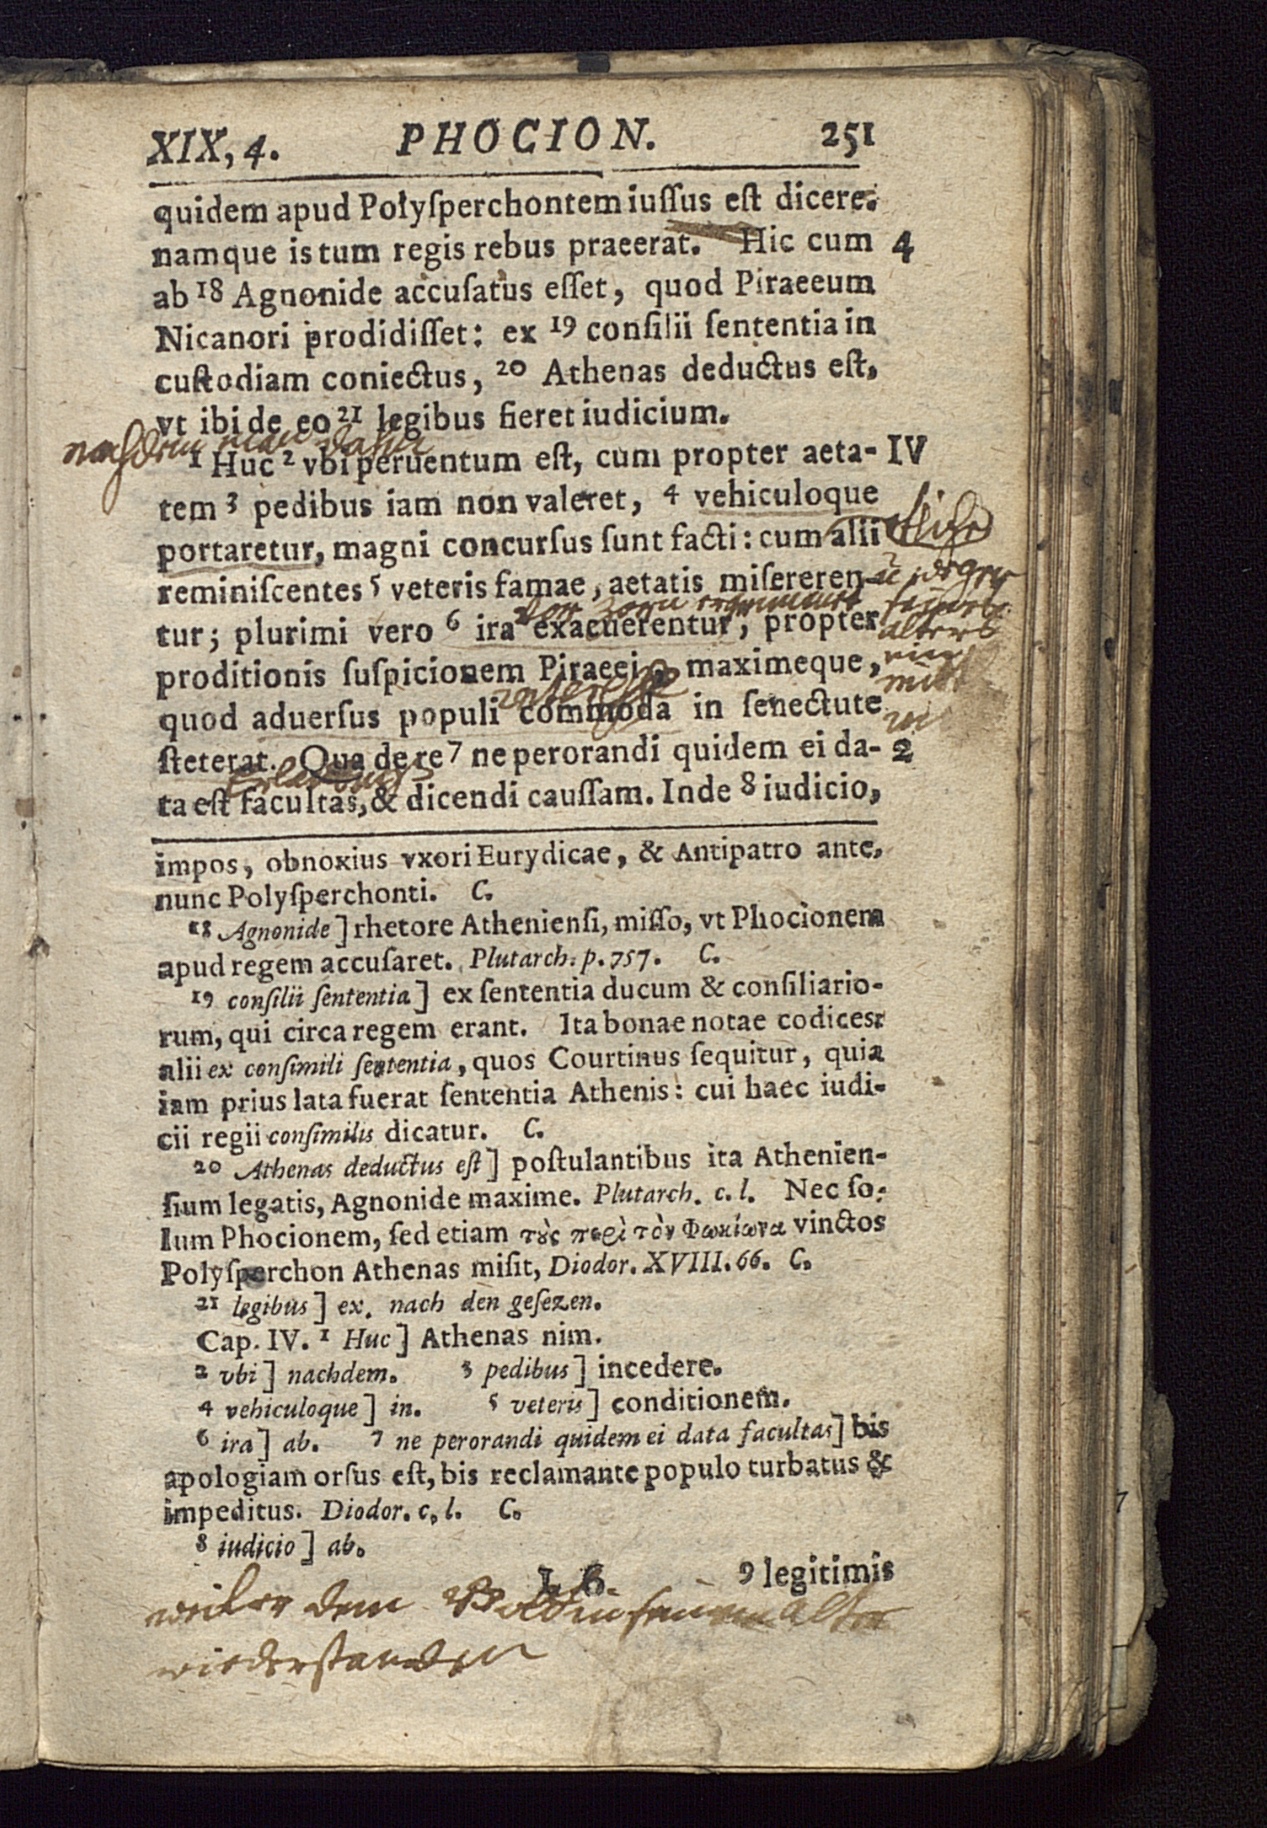 XIX, 4. PHOCION. 251
quidem apud Polyſperchontem iuſſus eſt dicere:
namque is tum regis rebus praeerat. Hic cum 4
ab 18 Agnonide accuſatus eſſet, quod Piraeeum
Nicanori prodidiſſet: ex 19 conſilii ſententia in
cuſtodiam coniectus, 20 Athenas deductus eſt,
vt ibi de eo 21 legibus fieret iudicium.
nachdem man dahin
1 Huc 2 vbi peruentum eſt, cum propter aeta- IV
tem 3 pedibus iam non valeret, 4 vehiculoque
portaretur, magni concurſus ſunt facti: cum alii etliche
reminiſcentes 5 veteris famae, aetatis miſereren- wegen
den Zorn
tur; plurimi vero 6 ira exacuerentur, propter alters
proditionis ſuſpicionem Piraeei, maximeque,
interesse
quod aduerſus populi commoda in ſenectute
ſteterat. Qua de re 7 ne perorandi quidem ei da- 2
Erlaubniß
ta eſt facultas, & dicendi cauſſam. Inde 8 iudicio,
impos, obnoxius vxori Eurydicae, & Antipatro ante,
nunc Polyſperchonti. C.
18 Agnonide] rhetore Athenienſi, miſſo, vt Phocionem
apud regem accuſaret. Plutarch. p. 757. C.
19 conſilii ſententia] ex ſententia ducum & conſiliario-
rum, qui circa regem erant. Ita bonae notae codices:
alii ex conſimili ſententia, quos Courtinus ſequitur, quia
iam prius lata fuerat ſententia Athenis: cui haec iudi-
cii regii conſimilis dicatur. C.
20 Athenas deductus eſt] poſtulantibus ita Athenien-
ſium legatis, Agnonide maxime. Plutarch. c. l. Nec ſo-
lum Phocionem, ſed etiam τὸς περὶ τὸν Φωκίωνα vinctos
Polyſperchon Athenas miſit, Diodor. XVIII. 66. C.
21 legibus] ex. nach den geſezen.
Cap. IV. 1 Huc] Athenas nim.
2 vbi] nachdem. 3 pedibus] incedere.
4 vehiculoque] in. 5 veteris] conditionem.
6 ira] ab. 7 ne perorandi quidem ei data facultas] bis
apologiam orſus eſt, bis reclamante populo turbatus &
impeditus. Diodor. c. l. C.
8 iudicio] ab.
L 6 9 legitimis
weil er dem Volck in seinem Alter
wiederstanden